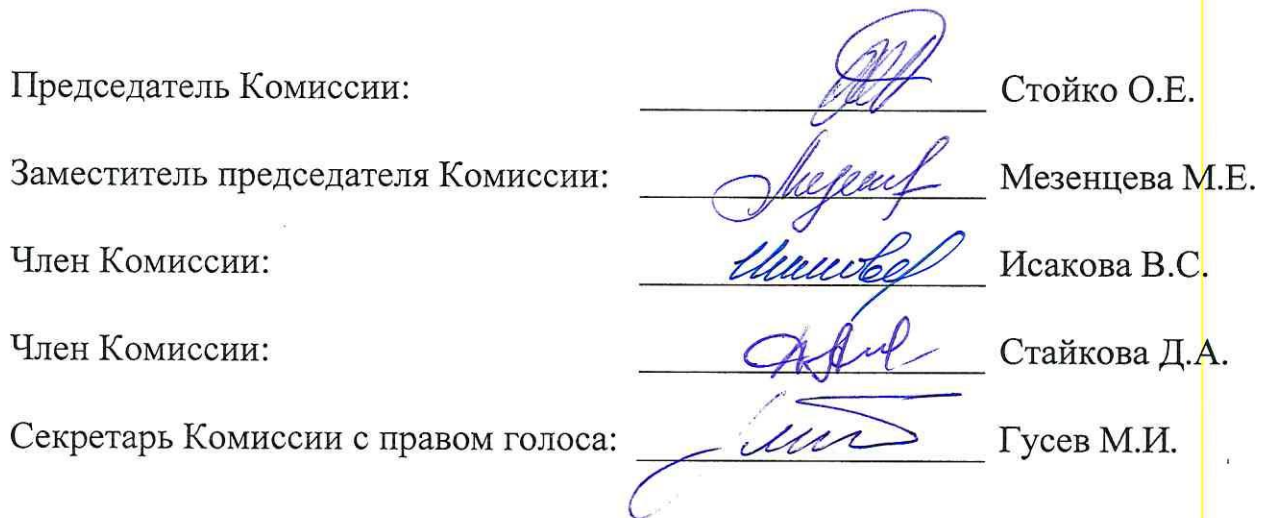 Председатель Комиссии: Стойко О.Е.
Заместитель председателя Комиссии: Мезенцева М.Е.
Член Комиссии: Исакова В.С.
Член Комиссии: Стайкова Д.А.
Секретарь Комиссии с правом голоса: Гусев М.И.